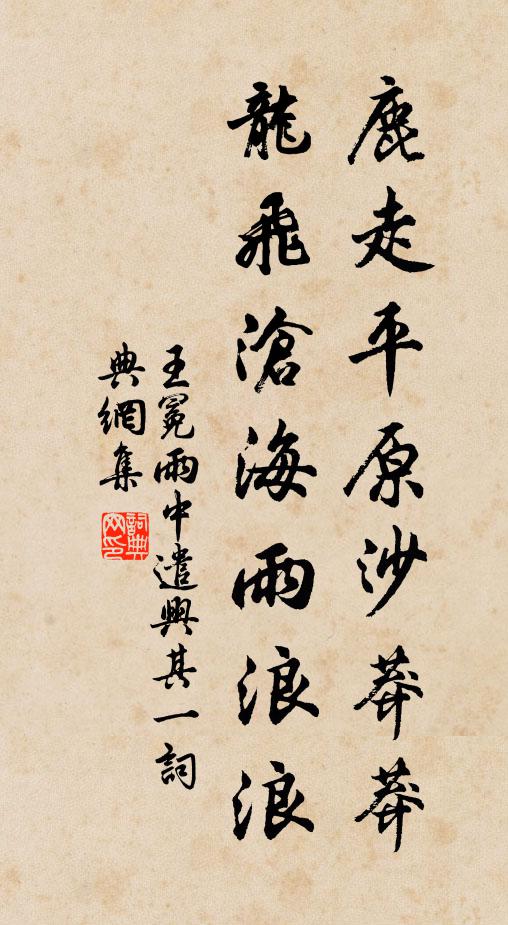 鹿走平原沙莽莽
龍飛滄海雨浪浪
王冕雨中遣興其一詞
典網集
詞典
网印